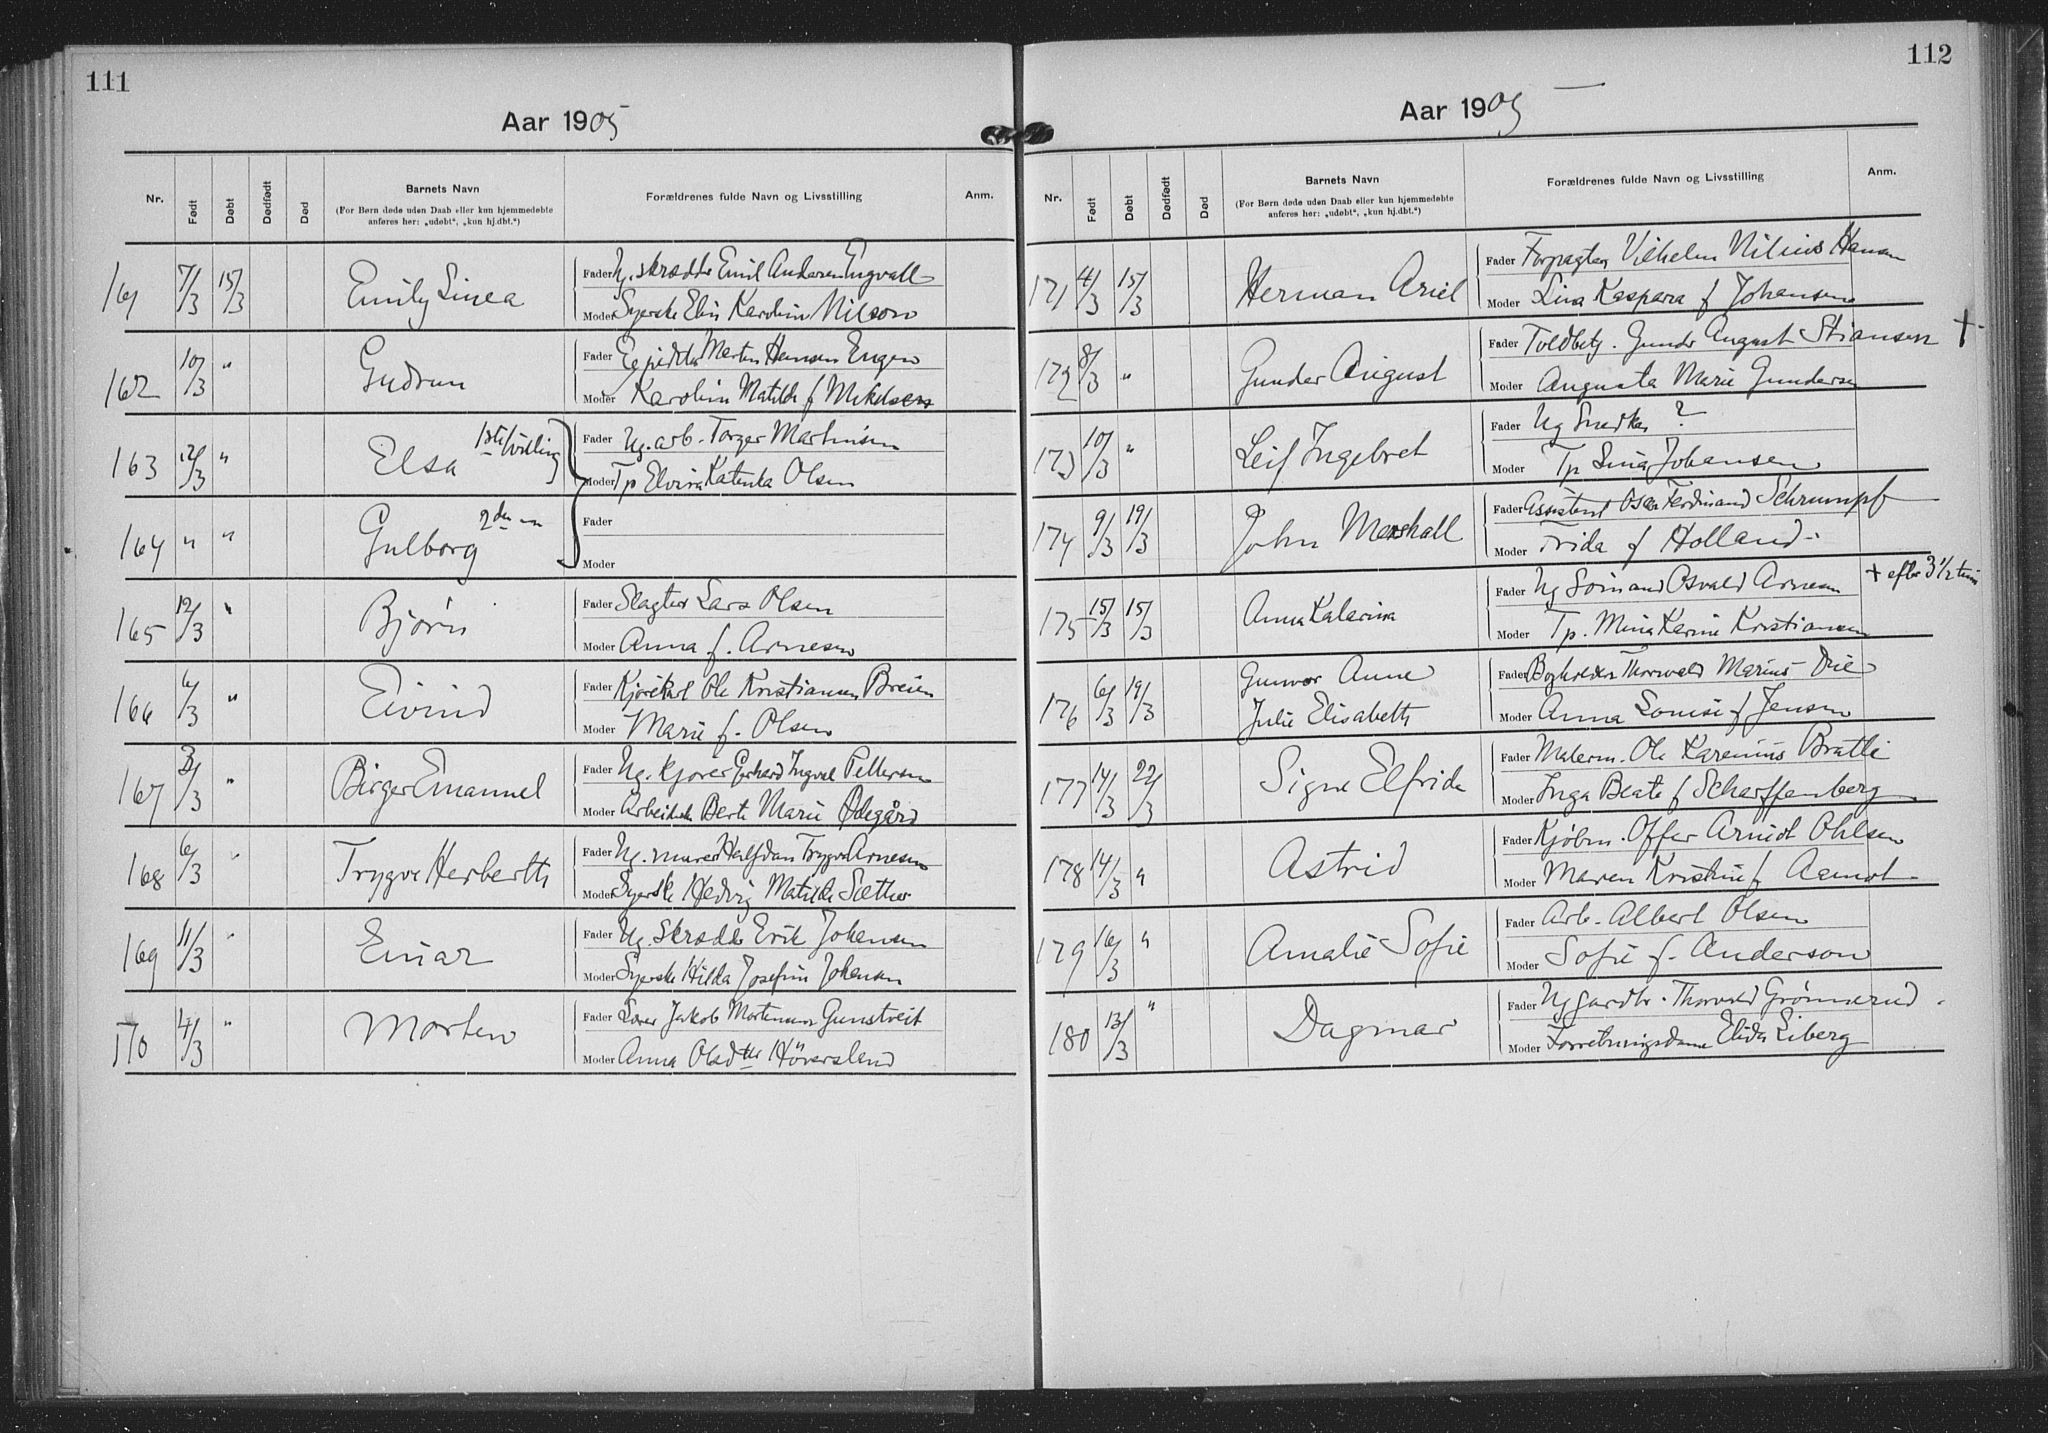 111
Aar 1905
Nr. Født Døbt Dødfødt Død Barnets Navn Forældrenes fulde Navn og Livsstilling Anm.
(For Børn døde uden Daab eller kun hjemmedøbte
anføres her: „udøbt“, „kun hj.dbt.“)
161 7/3 15/3 Emily Linea Fader Ug. skrædder Emil Andersen Engvall
Moder Syerske Elin Karolin Nilsson
162 10/3 " Gudrun Fader Martin Hansen Engen
Moder Karolin Matilde f Mikelsen
163 12/3 " Elsa 1ste tvilling Fader Ug. arb. Torger Martinsen
Moder Tp Elvira Katinka Olsen
164 " " Gulborg 2den " Fader
Moder
165 12/3 " Bjørn Fader Slagter Lars Olsen
Moder Anna f. Arnesen
166 6/3 " Eivind Fader Kjørekarl Ole Kristiansen Breien
Moder Marie f. Olsen
167 3/3 " Birger Emanuel Fader Ug. kjører Gerhard Ingval Pettersen
Moder Berte Marie Ødegård
168 6/3 " Trygve Herberth Fader Ug. murer Halfdan Trygve Arnesen
Moder Syerske Hedvig Matilde Sæther
169 11/3 " Einar Fader Ug. Skrædder Erik Johansen
Moder Syerske Hilda Josefine Johansen
170 4/3 " Morten Fader Lærer Jakob Mortensen Gunstveit
Moder Anna Olsdtr Höversland
112
Aar 1905
Nr. Født Døbt Dødfødt Død Barnets Navn Forældrenes fulde Navn og Livsstilling Anm.
(For Børn døde uden Daab eller kun hjemmedøbte
anføres her: „udøbt“, „kun hj.dbt.“)
171 4/3 15/3 Herman Ariel Fader Forpagter Vilhelm Nilius Hansen
Moder Lina Kaspara f Johansen
172 8/3 " Gunder August Fader Toldbetj. Gunder August Stiansen †
Moder Augusta Marie Gundersen
173 10/3 " Leif Ingebret Fader Ug Snedker ?
Moder Tp Lina Johansen
174 9/3 19/3 John Marshall Fader Assistent Oscar Ferdinand Schrumpf
Moder Frida f Holland
175 15/3 15/3 Anna Katarina Fader Ug Sømand Osvald Arnesen † efter 3 1/2 time
Moder Tp. Mina Karine Kristiansen
176 6/3 19/3 Gunvor Anne Fader Bogholder Thorvald Marius Due
Julie Elisabeth Moder Anna Louise f Jensen
177 14/3 22/3 Signe Elfrida Fader Malerm. Ole Karenius Bratlie
Moder Inga Beate f Scharffenberg
178 14/3 " Astrid Fader Kjøbm. Offer Arndt Ohlsen
Moder Maren Kristine f Aamot
179 16/3 " Amalie Sofie Fader Arb. Albert Olsen
Moder Sofie f. Anderson
180 13/3 " Dagmar Fader Ug gardbr. Thorvald Grønnerud
Moder Forretningsdame Elida Liberg